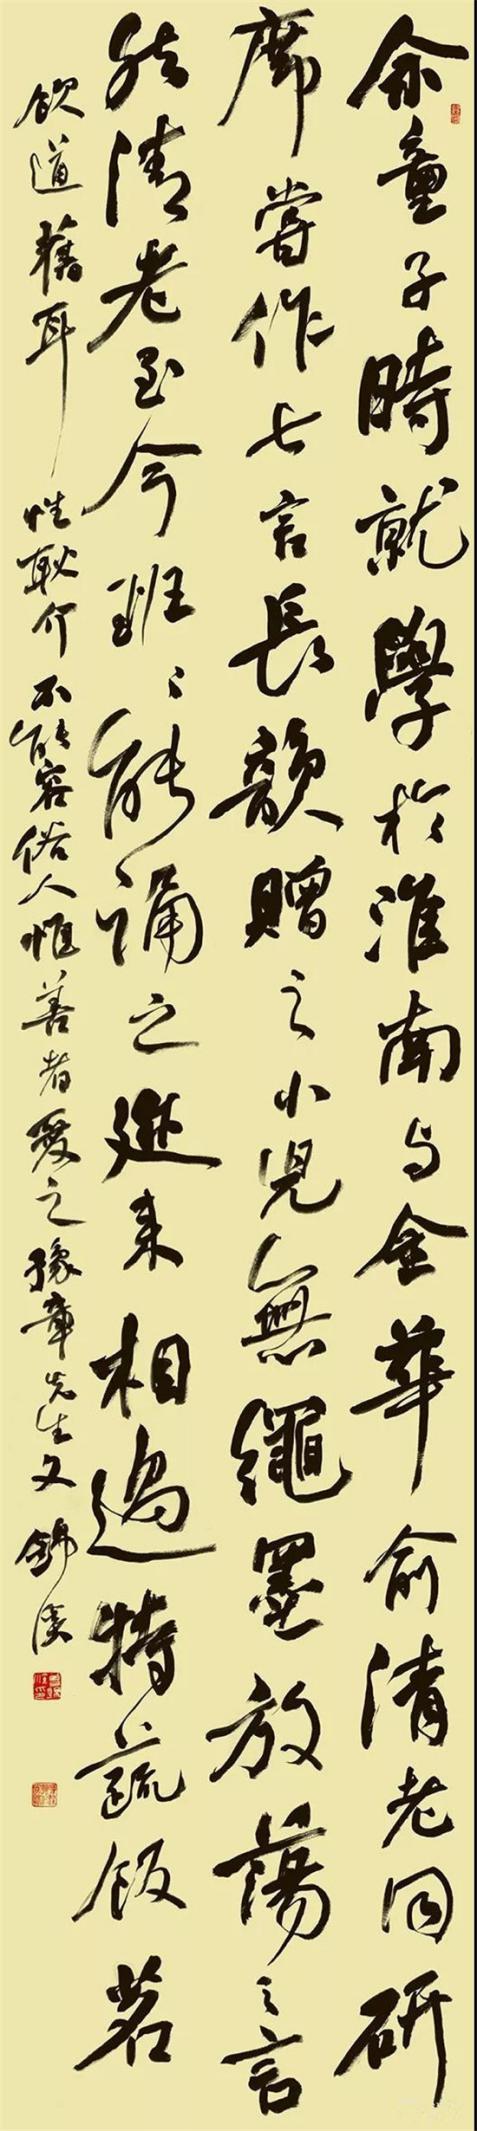 余童子時就學於淮南与金華俞清老同研
席嘗作七言長韻贈之小兒無繩墨放蕩之言
然清老至今班〻能誦之邇來相過特蔬飯茗
飲道舊耳 性耿介不能容俗人惟善者愛之豫章先生文 錦溪